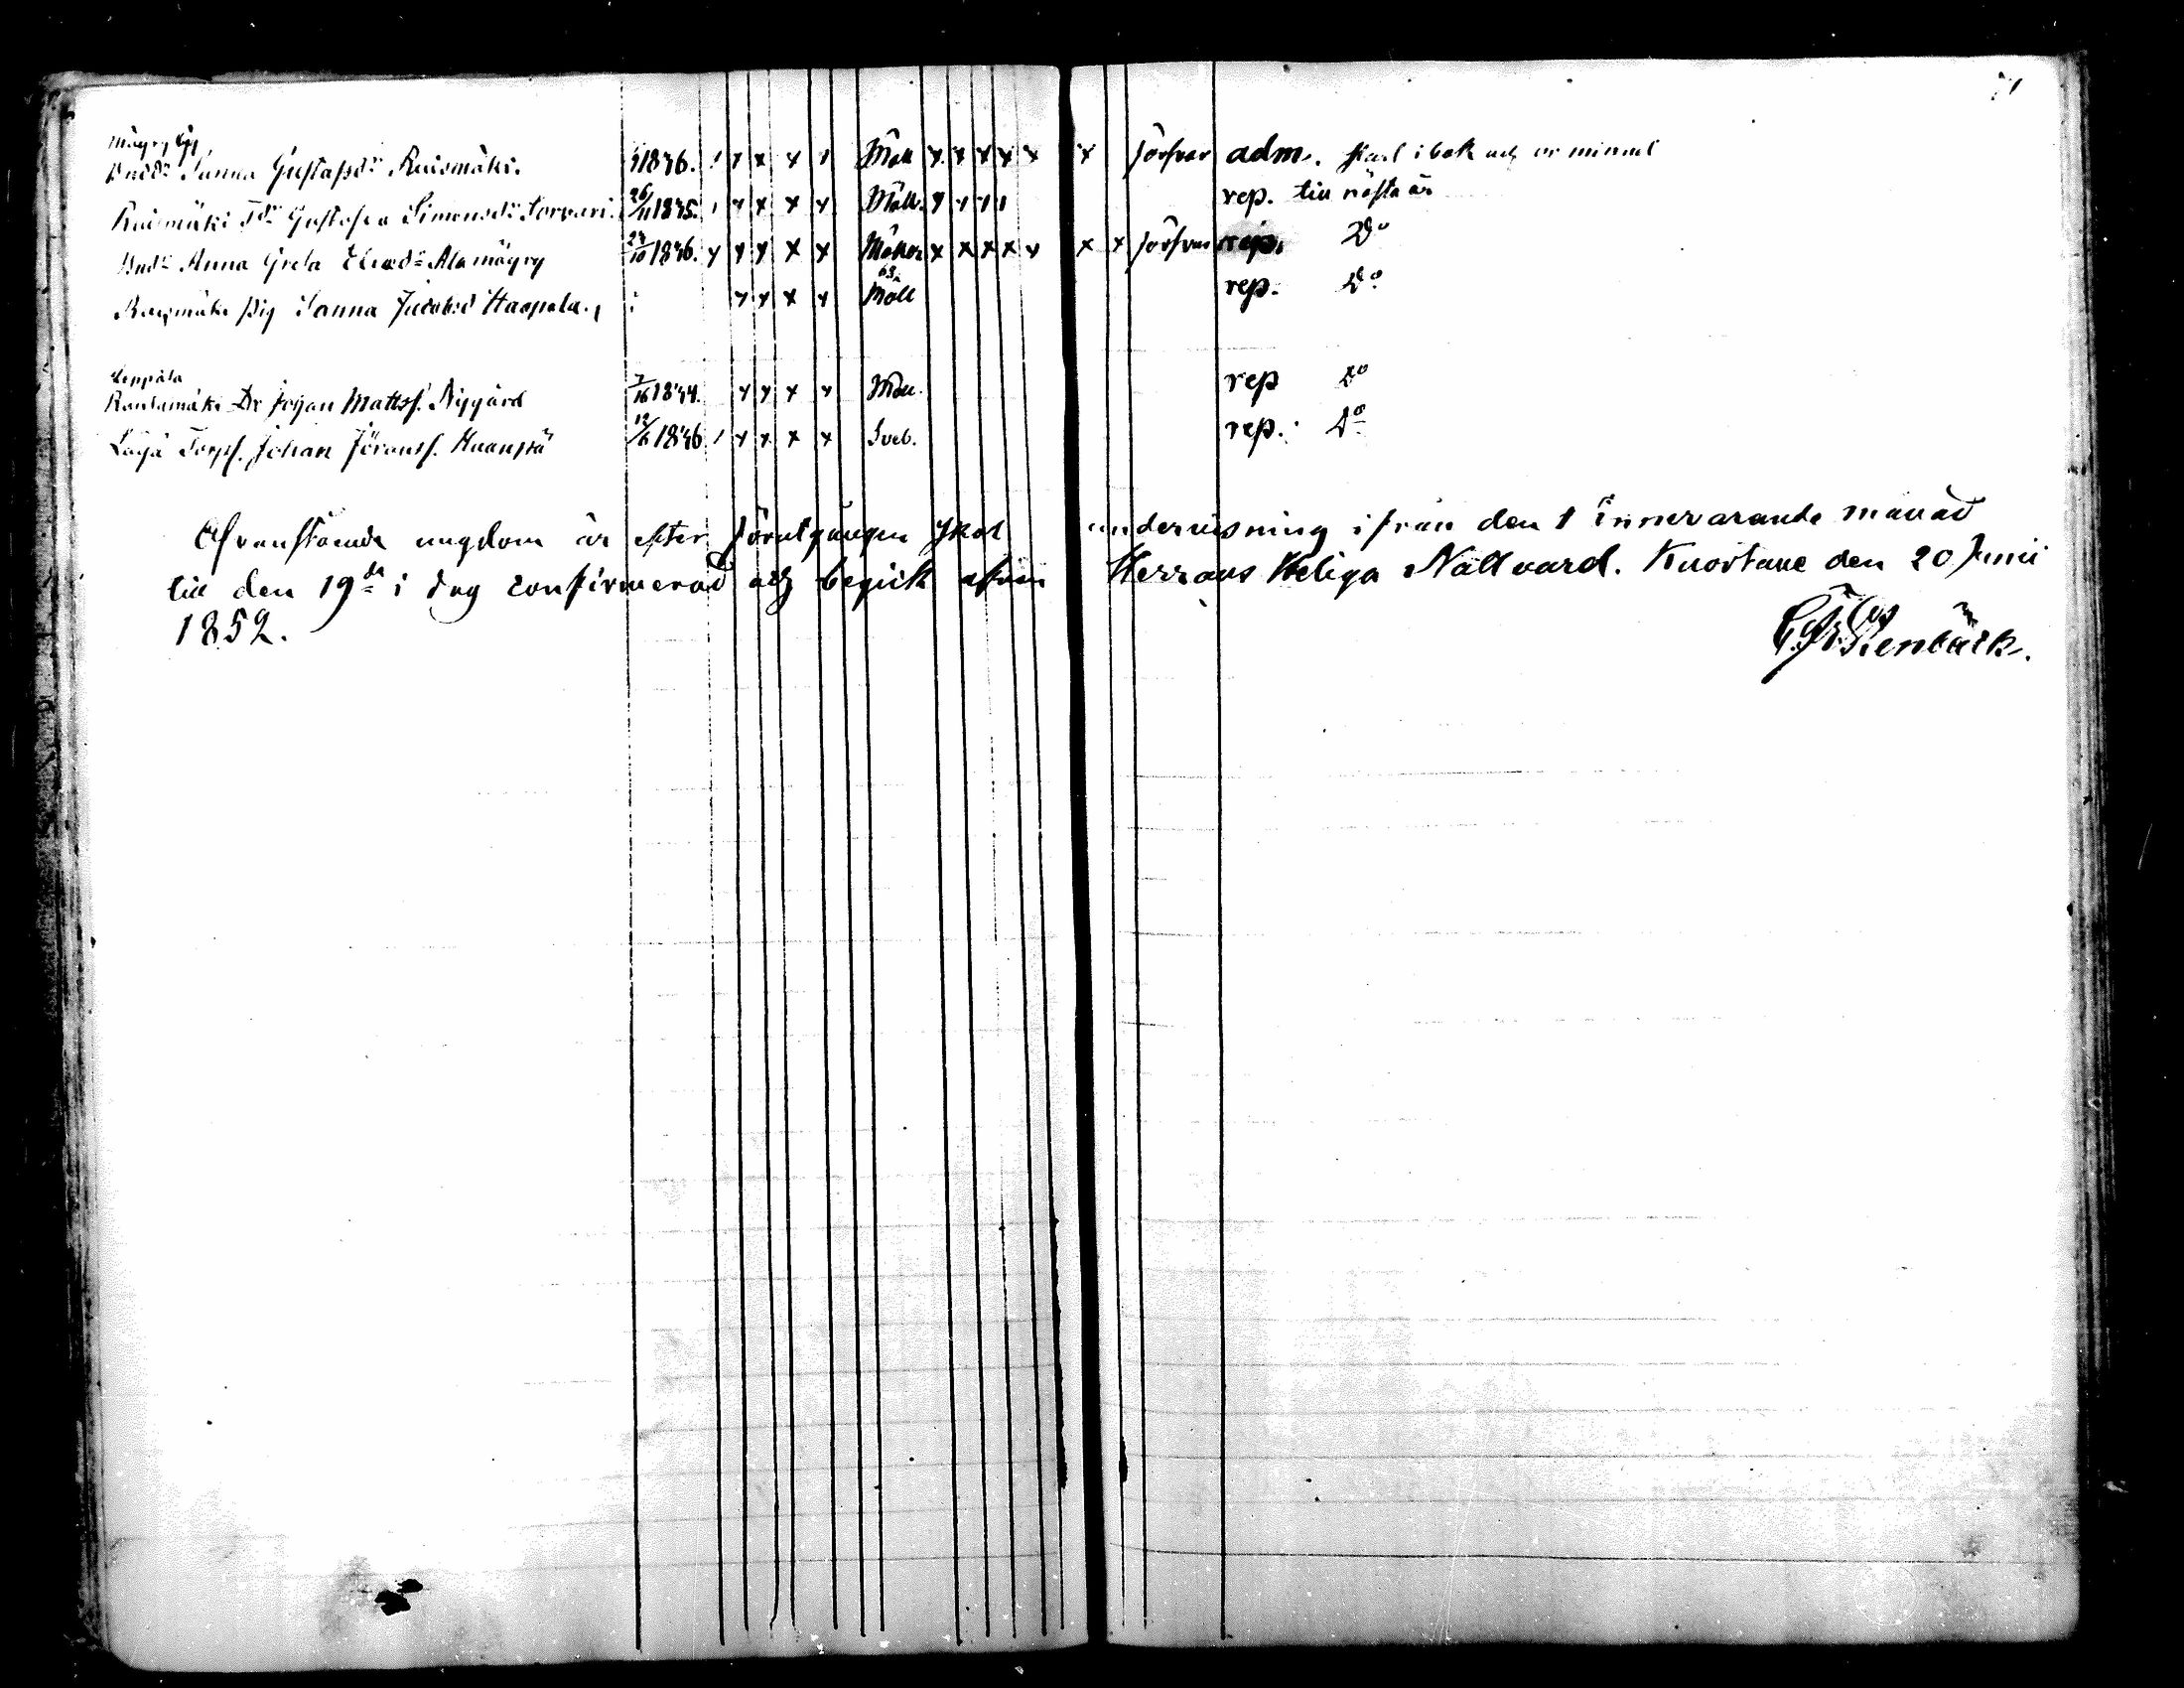 71
Mäyry by,
Bndd:r Sanna Gustafsd:r Ruismäki. 1836. x x x x Möll x x x x x x försvar adm. svarl i bok och ur minnet
Ruismäki Td:r Gustafva Simonsd:r Torvari. 26/11 1835. x x x x Möll. rep. till nästa år
Bnd:r Anna Greta Eliæd:r Alamäyry 24/10 1836. x x x x x x x x x x x x försvar rep. D:o
Ruismäki Pig Sanna Jacobsd Haapala. x x x x Möll rep. D:o
Leppälä
Rantamäki Dr Johan Mattss. Nygård 7/16 1834. x x x x Möll. rep D:o
Länjä Torps. Johan Jöranss. 12/6 1836 x x x x Sveb. rep. D:o
Ofvanstående ungdom är efter förutgången Skol undervisning ifrån den 1 innevarande månad
till den 19:de i dag confirmerad och begick äfven Herrans Heliga Nattvard. Kuortane den 20 Junii
1852. C. Fr. Stenbäck.